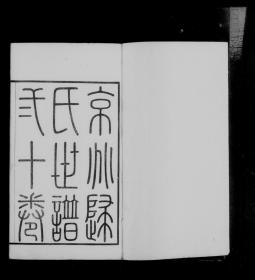 京兆歸
氏世譜
弍十卷